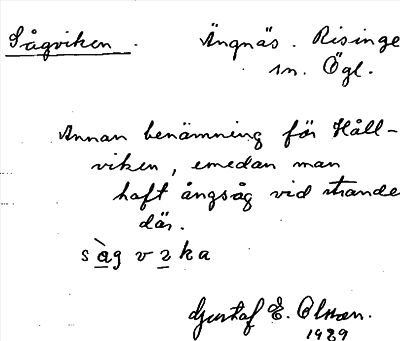 Sågviken. Ängnäs. Risinge
sn. Ögl.
Annan benämning för Håll-
viken, emedan man
haft ångsåg vid strande
där.
sàg v ka
Gustaf E. Olsson.
1929